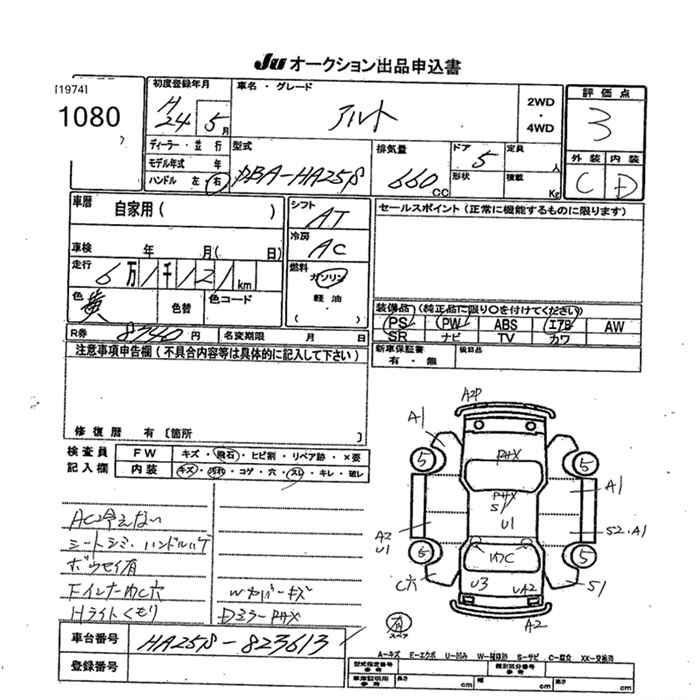 Ju オークション出品申込書
[1974]
1080
初度登録年月
H
24 5月
車名・グレード
アルト
2WD
・
4WD
評価点
3
ディーラー・並行
モデル年式 年
ハンドル 左・右
型式
DBA-HA25S
排気量
660
CC
ドア 5
定員 人
形状
積載 Kg
外装 内装
C D
車暦
自家用( )
シフト
AT
セールスポイント(正常に機能するものに限ります)
車検 年 月( 日)
冷房
AC
走行
6万1千121km
燃料
ガソリン
軽油
( )
色
黄
色替
色コード
装備品(純正品に限り○を付けてください)
PS PW ABS エアB AW
SR ナビ TV カワ
R券 8740円
名変期限 月 日
新車保証書
有・無
後日品
注意事項申告欄(不具合内容等は具体的に記入して下さい)
修復暦 有〔箇所 〕
検査員
記入欄
FW キズ・飛石・ヒビ割・リペア跡・×要
内装 キズ・汚れ・コゲ・穴・スレ・キレ・破レ
AC冷えない
シートシミ・ハンドルハゲ
ボウセイ有
Hライトくもり
Wカバーキズ
DミラーPHX
A2P
A1
5
5
PHX
PHX
S1
U1
A1
A2
U1
S2・A1
5
5
C穴
U3
UA2
S1
A2
有
スペア
車台番号 HA25S-823613
登録番号
A-キズ E-エクボ U-凹み W-補修跡 S-サビ C-腐食 XX-交換済
型式指定番号
参考
類別区分番号
参考
車庫証明用
参考
長さ cm
幅 cm
高さ cm